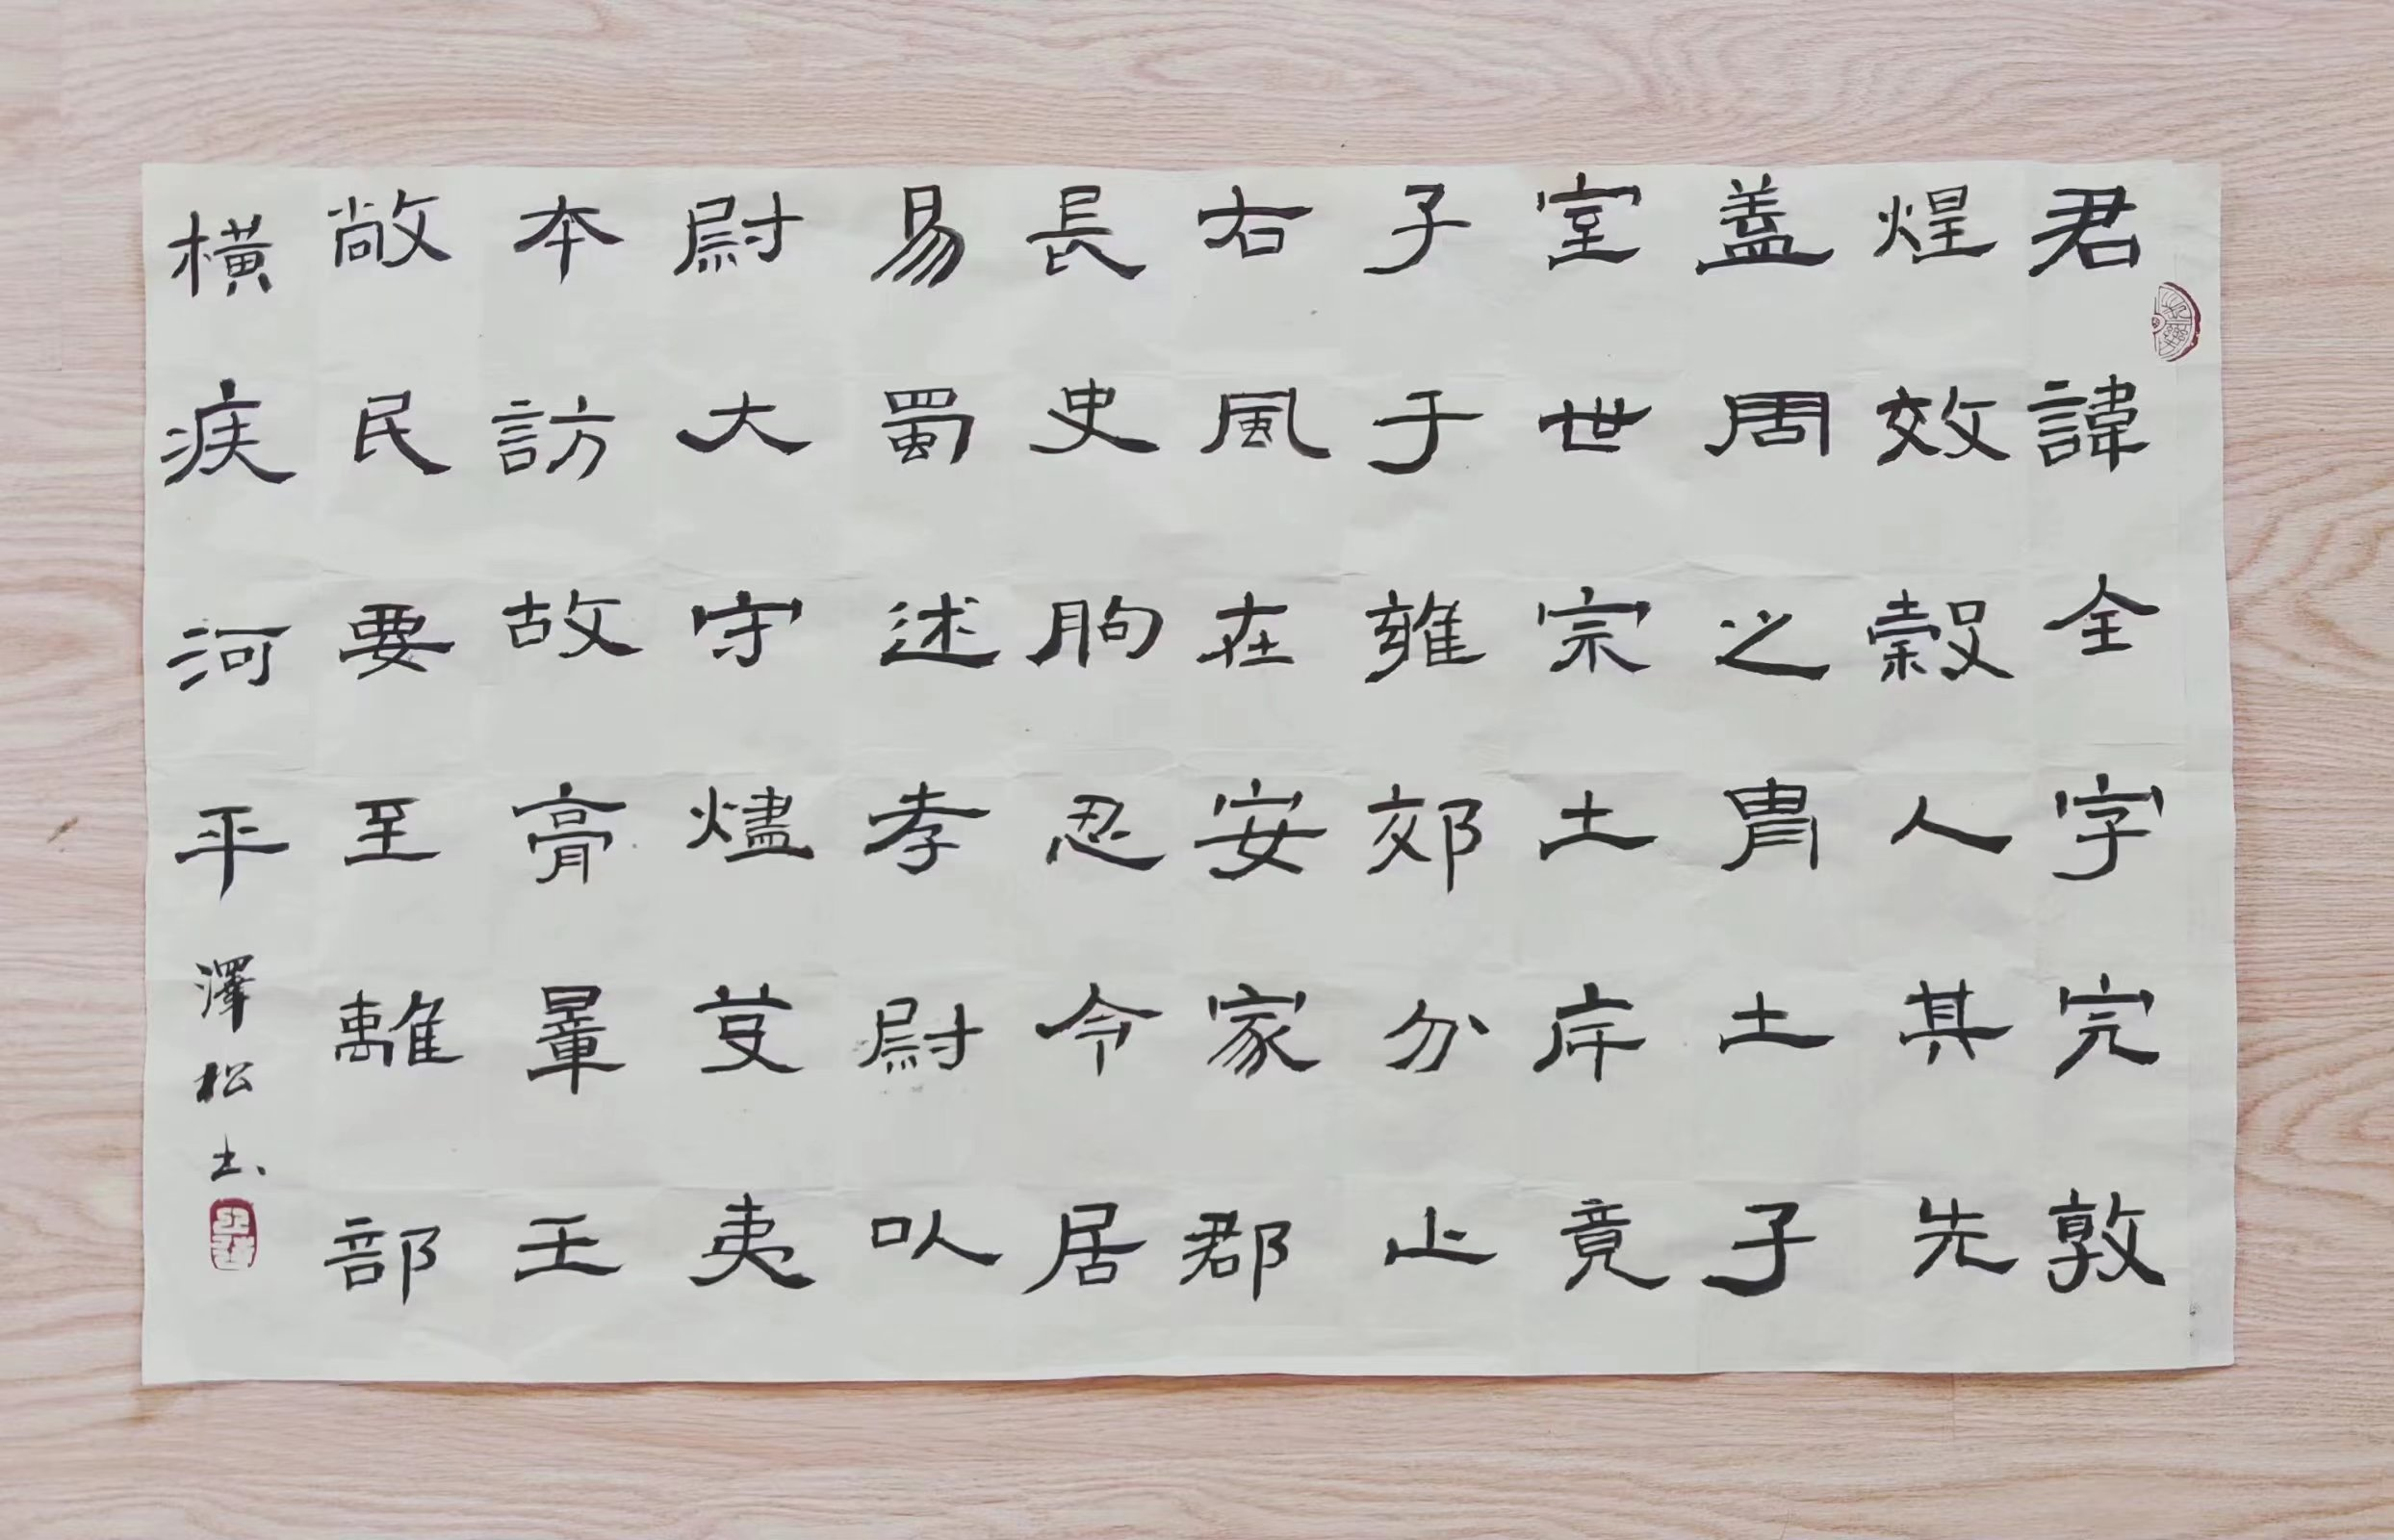 君諱全字完敦
煌效穀人其先
蓋周之胄土子
室世宗土庠竟
子于雍郊分止
右風在安家郡
長史朐忍令居
易蜀述孝尉以
尉大守燼芟夷
本訪故膏暈王
敞民要至離部
橫疾河平
澤松书